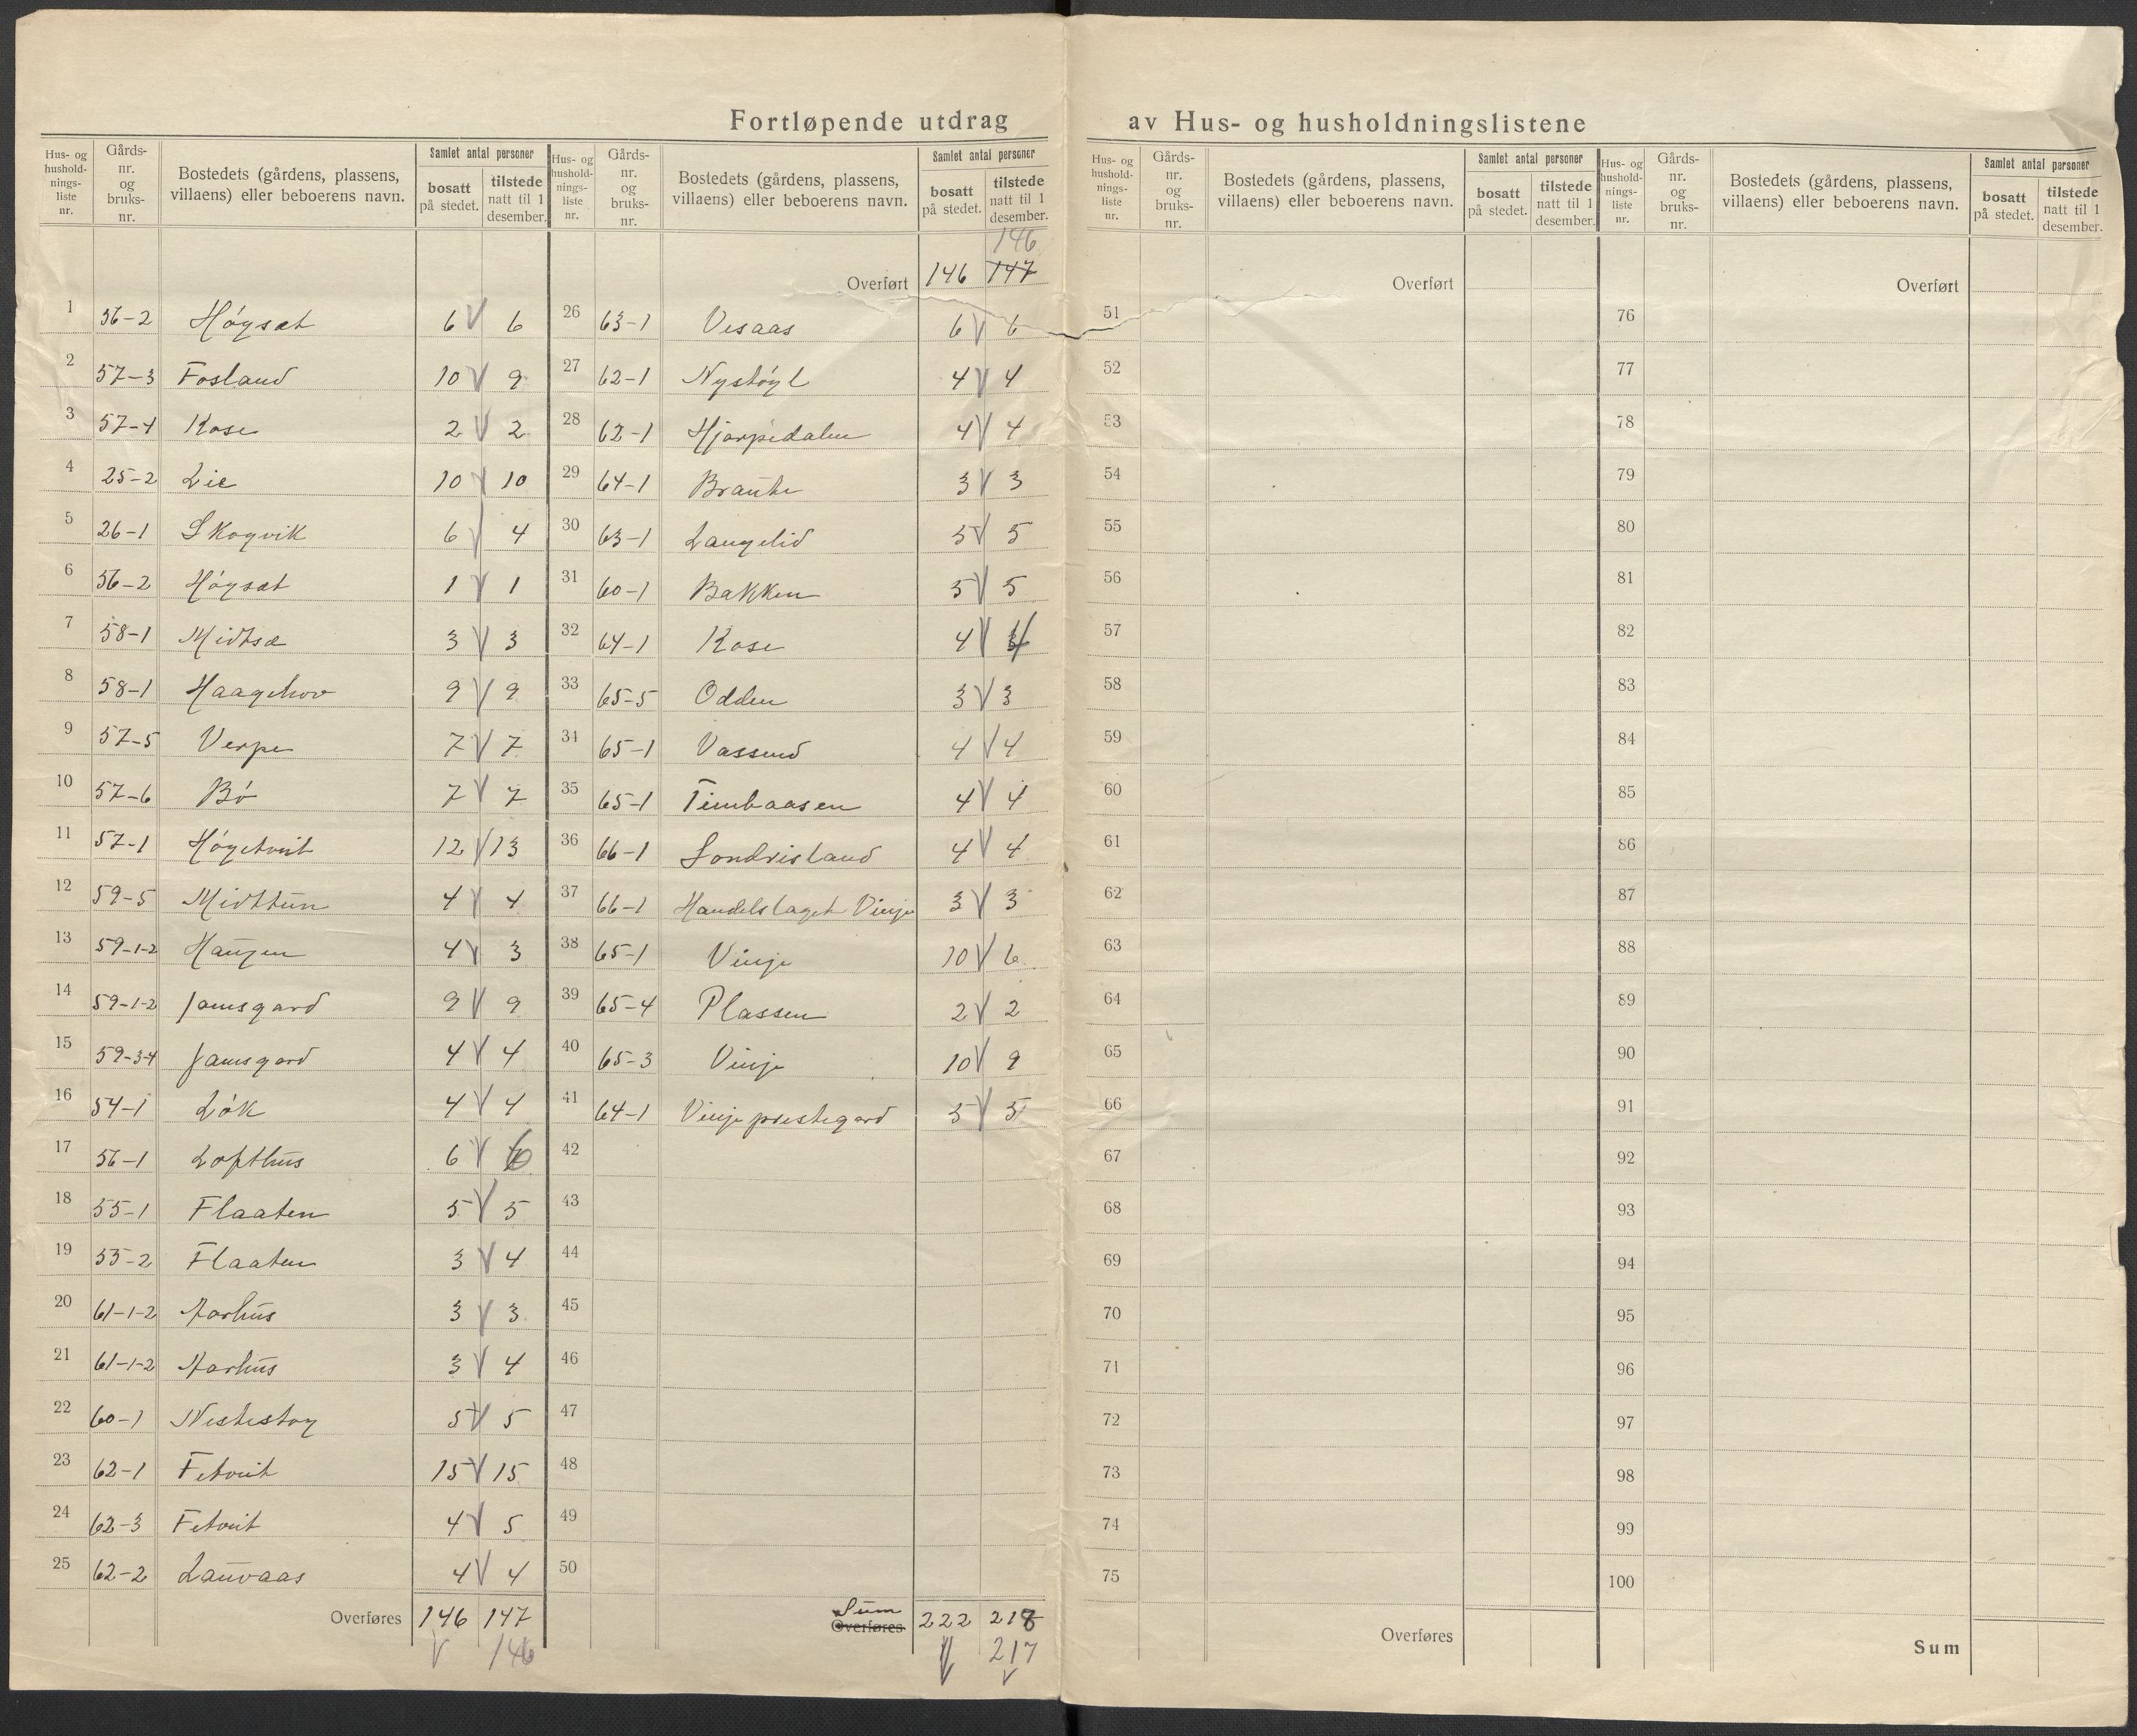 Fortløpende utdrag av Hus- og husholdningslistene
Hus- og hushold-nings-liste nr. | Gårds-nr. og bruks-nr. | Bostedets (gårdens, plassens, villaens) eller beboerens navn. | Samlet antal personer | bosatt på stedet. | tilstede natt til 1 desember.
1 36-2 Høgsæt 6 V 6
2 57-3 Fosland 10 V 9
3 57-4 Kose 2 V 2
4 25-2 Lie 10 V 10
5 26-1 Skogvik 6 V 4
6 56-2 Høgsæt 1 V 1
7 58-1 Midtsæ 3 V 3
8 58-1 Haagehov 9 V 9
9 57-5 Verpe 7 V 7
10 57-6 Bø 7 V 7
11 57-1 Høgetveit 12 V 13
12 59-5 Midttun 4 V 4
13 59-1-2 Haugen 4 V 3
14 59-1-2 Jamsgard 9 V 9
15 59-3-4 Jamsgard 4 V 4
16 54-1 Løk 4 V 4
17 56-1 Lofthus 6 V 6
18 55-1 Flaaten 5 V 5
19 55-2 Flaaten 3 V 4
20 61-1-2 Aarhus 3 V 3
21 61-1-2 Aarhus 3 V 4
22 60-1 Nestestog 5 V 5
23 62-1 Fetveit 15 V 15
24 62-3 Fetveit 4 V 5
25 62-2 Lauvaas 4 V 4
Overføres 146 147
V 146
Hus- og hushold-nings-liste nr. | Gårds-nr. og bruks-nr. | Bostedets (gårdens, plassens, villaens) eller beboerens navn. | Samlet antal personer | bosatt på stedet. | tilstede natt til 1 desember.
146
Overført 146 147
26 63-1 Vesaas 6 V 6
27 62-1 Nystøyl 4 V 4
28 62-1 Hjærpedalen 4 V 4
29 64-1 Braute 3 V 3
30 63-1 Langelid 5 V 5
31 60-1 Bakken 5 V 5
32 64-1 Kose 4 V 4
33 65-5 Odden 3 V 3
34 65-1 Vassend 4 V 4
35 65-1 Timbaasen 4 V 4
36 66-1 Sondrisland 4 V 4
37 66-1 Handelslaget Vinje 3 V 3
38 65-1 Vinje 10 V 6
39 65-4 Plassen 2 V 2
40 65-3 Vinje 10 V 9
41 64-1 Vinje prestegard 5 V 5
42
43
44
45
46
47
48
49
50
Sum
Overføres 222 218
V 217
V
Hus- og hushold-nings-liste nr. | Gårds-nr. og bruks-nr. | Bostedets (gårdens, plassens, villaens) eller beboerens navn. | Samlet antal personer | bosatt på stedet. | tilstede natt til 1 desember.
Overført
51
52
53
54
55
56
57
58
59
60
61
62
63
64
65
66
67
68
69
70
71
72
73
74
75
Overføres
Hus- og hushold-nings-liste nr. | Gårds-nr. og bruks-nr. | Bostedets (gårdens, plassens, villaens) eller beboerens navn. | Samlet antal personer | bosatt på stedet. | tilstede natt til 1 desember.
Overført
76
77
78
79
80
81
82
83
84
85
86
87
88
89
90
91
92
93
94
95
96
97
98
99
100
Sum